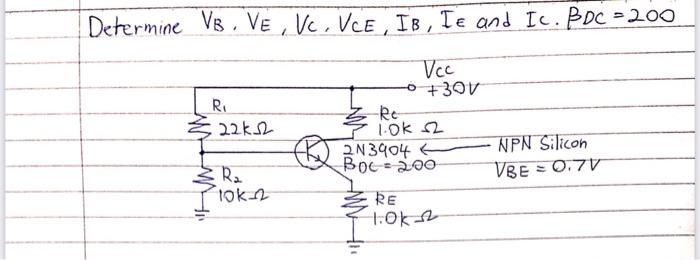 Determine VB, VE, VC, VCE, IB, IE and IC. βDC = 200
VCC
+30V
R1
22kΩ
RC
1.0k Ω
2N3904 ← NPN Silicon
BDC = 200
VBE = 0.7V
R2
10kΩ
RE
1.0kΩ